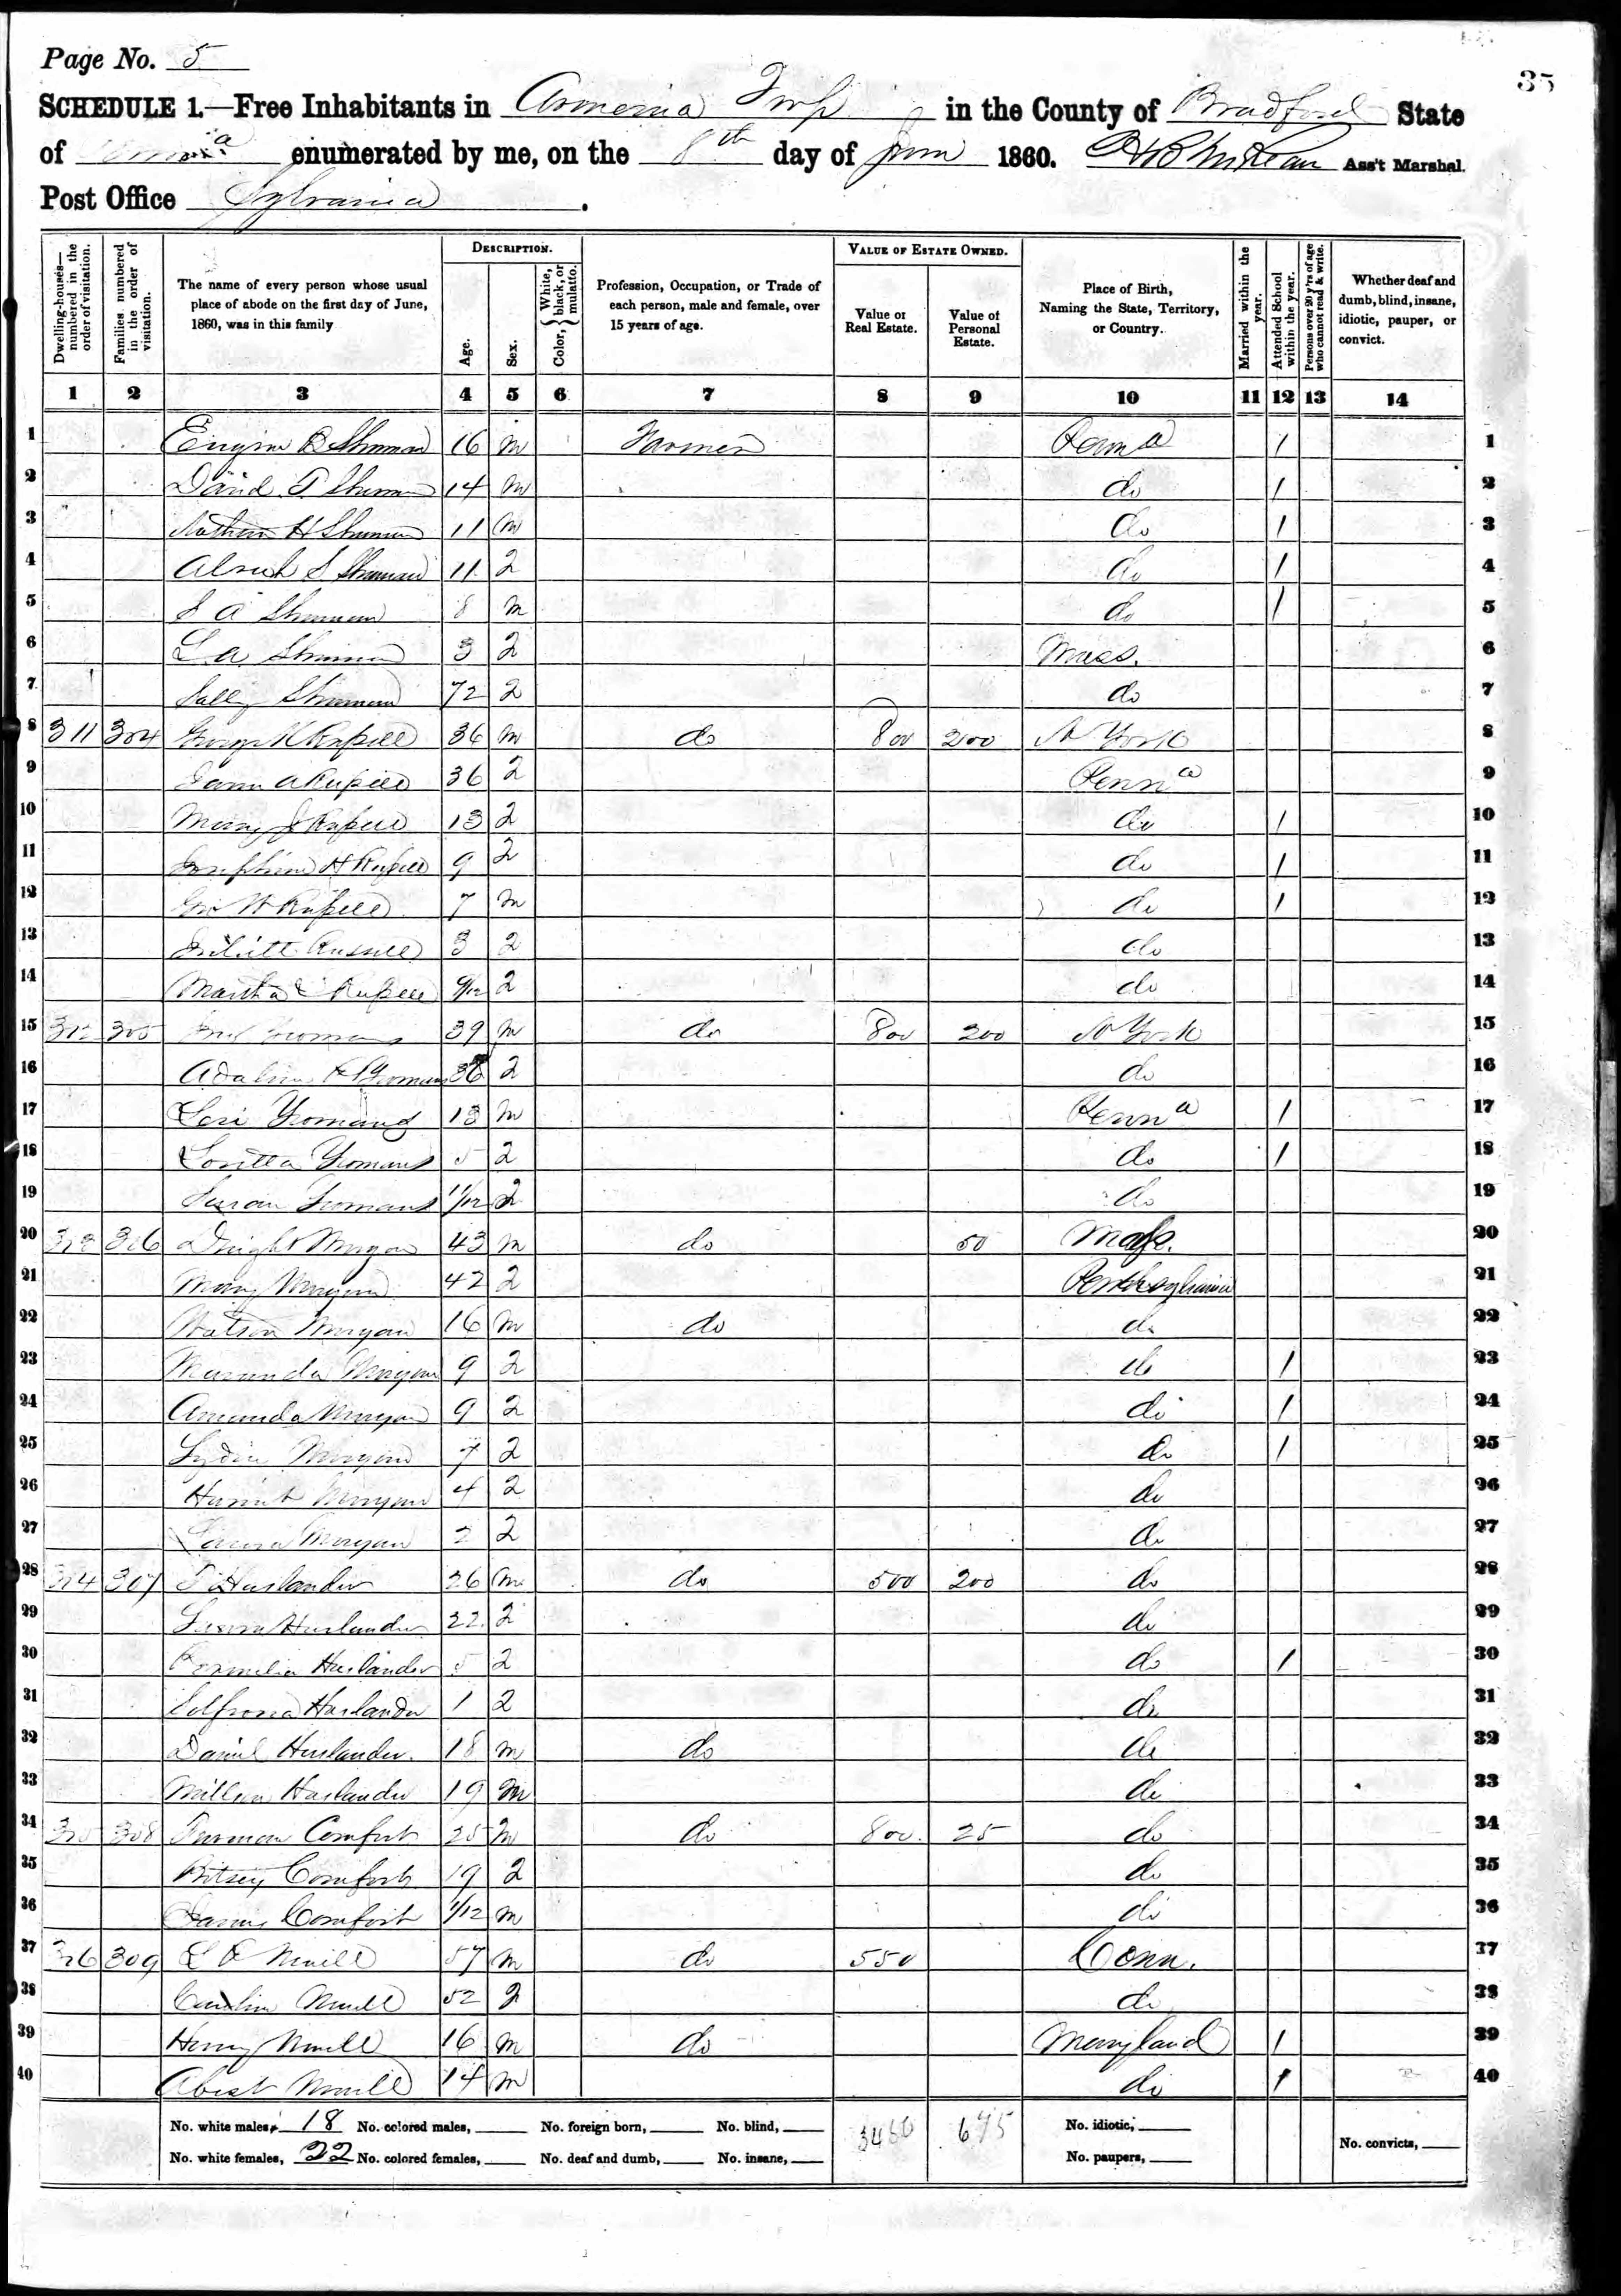 Page No. 5
35
SCHEDULE 1.—Free Inhabitants in Armenia Twp in the County of Bradford State
of enumerated by me, on the 8th day of June 1860. Ass't Marshal.
Post Office Sylvania.
DESCRIPTION. VALUE OF ESTATE OWNED.
Dwelling-houses—numbered in the order of visitation. Families numbered in the order of visitation. The name of every person whose usual place of abode on the first day of June, 1860, was in this family Age. Sex. Color, { White, black, or mulatto. Profession, Occupation, or Trade of each person, male and female, over 15 years of age. Value of Real Estate. Value of Personal Estate. Place of Birth, Naming the State, Territory, or Country. Married within the year. Attended School within the year. Persons over 20 y'rs of age who cannot read & write. Whether deaf and dumb, blind, insane, idiotic, pauper, or convict.
1 2 3 4 5 6 7 8 9 10 11 12 13 14
1 B Shuman 16 m Farmer Penna / 1
2 David T Shuman 14 m do / 2
3 H Shuman 11 m do / 3
4 S Shuman 11 2 do / 4
5 S A Shuman 8 m do / 5
6 L A Shuman 3 2 Mass. 6
7 Sally Shuman 72 2 do 7
8 311 304 George Rußell 36 m do 800 200 N York 8
9 A Rußell 36 2 Penna 9
10 Mary J Rußell 13 2 do / 10
11 Josephine H Rußell 9 2 do / 11
12 Geo W Rußell 7 m do / 12
13 Russell 3 2 do 13
14 Martha Rußell 9/12 2 do 14
15 312 305 Yeomans 39 m do 800 200 N York 15
16 Adaline Yeomans 36 2 do 16
17 Levi Yeomans 13 m Penna / 17
18 Loretta Yeomans 5 2 do / 18
19 Susan Yeomans 11/12 2 do 19
20 313 306 Dwight Morgan 43 m do 50 Maſs. 20
21 Mary Morgan 42 2 Pennsylvania 21
22 Watson Morgan 16 m do do 22
23 Maranda Morgan 9 2 do / 23
24 Amanda Morgan 9 2 do / 24
25 Lydia Morgan 7 2 do / 25
26 Harriet Morgan 4 2 do 26
27 Laura Morgan 2 2 do 27
28 314 307 Huslander 26 m do 500 200 do 28
29 Huslander 22 2 do 29
30 Huslander 5 2 do / 30
31 Huslander 1 2 do 31
32 Daniel Huslander. 18 m do do 32
33 Huslander 19 m do 33
34 315 308 Furman Comfort 25 m do 800. 25 do 34
35 Betsey Comfort 19 2 do 35
36 Comfort 1/12 m do 36
37 316 309 57 m do 550 Conn. 37
38 52 2 do 38
39 Henry 16 m do Maryland / 39
40 14 m do / 40
No. white males, 18 No. colored males, No. foreign born, No. blind, 3450 675 No. idiotic,
No. white females, 22 No. colored females, No. deaf and dumb, No. insane, No. paupers, No. convicts,